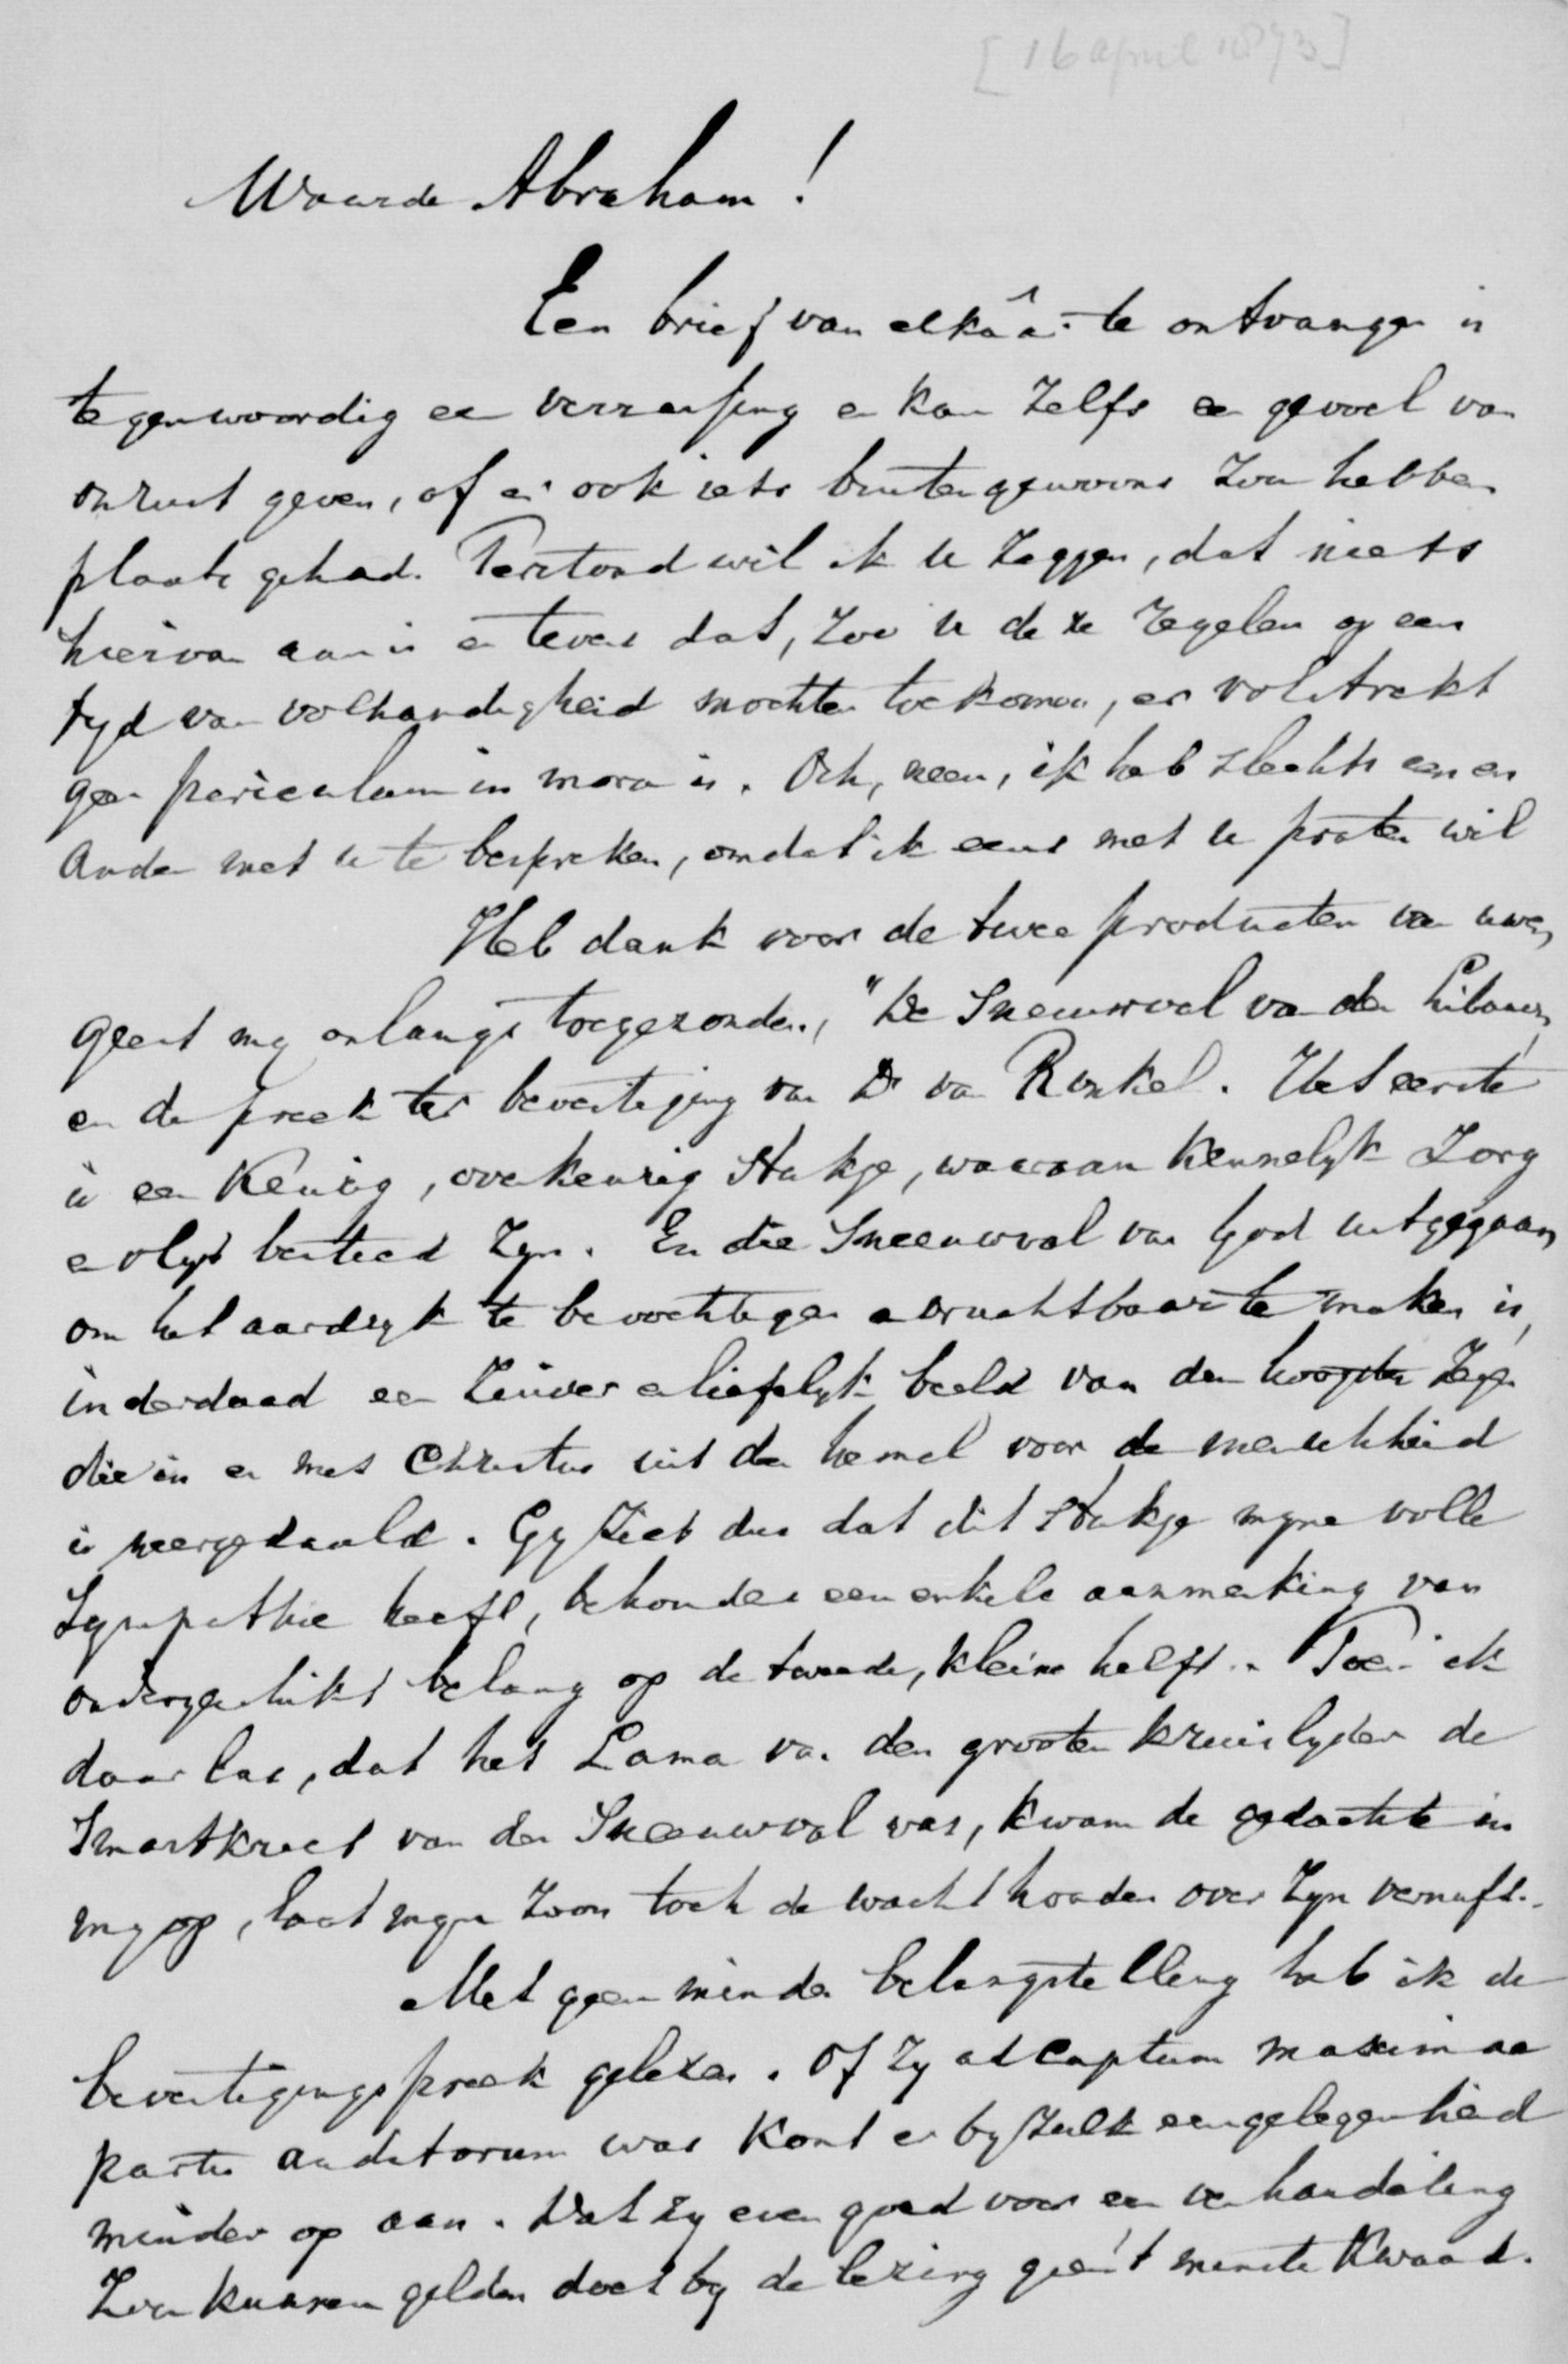 [16 april 1873]
Waarde Abraham!
Een brief van elkâar te ontvangen is
tegenwoordig een verrassing en kan zelfs een gevoel van
onrust geven, of er ook iets buitengewoons zou hebben
plaats gehad. Terstond wil ik u zeggen, dat niets
hiervan aan is en tevens dat, zoo u deze regelen op een
tyd van volhandigheid mochten toekomen, er volstrekt
geen periculum in mora is. Och, neen, ik heb slechts een en
ander met u te bespreken, omdat ik eens met u praten wil
Heb dank voor de twee producten van uwen
geest my onlangs toegezonden, "De Sneeuwval van den Libanon,
en de preek ter bevestiging van Dr van Ronkel. Het eerste
is een keurig, overkeurig stukje, waaraan kennelyk zorg
en vlyt besteed zyn. En die Sneeuwval van God uitgegaan,
om het aardryk te bevochtigen en vruchtbaar te maken is,
inderdaad een zuiver en liefelyk beeld van den hoogsten zegen
die in en met Christus uit den hemel voor de menschheid
is neergedaald. Gy ziet dus dat dit stukje myne volle
sympathie heeft, behoudens een enkele aanmerking van
ondergeschikt belang op de tweede, kleine helft. Toen ik
daar las, dat het Lama van den grooten kruislyder de
smartkreet van den Sneeuwval was, kwam de gedachte in
my op, laat myn zoon toch de wacht houden over zyn vernuft.
Met geen minder belangstelling heb ik de
bevestigingspreek gelezen. Of zy ad captum maximae
partis auditorum was komt er by zulk een gelegenheid
minder op aan. Dat zy even goed voor een verhandeling
zou kunnen gelden doet by de lezing geen 't minste kwaad.